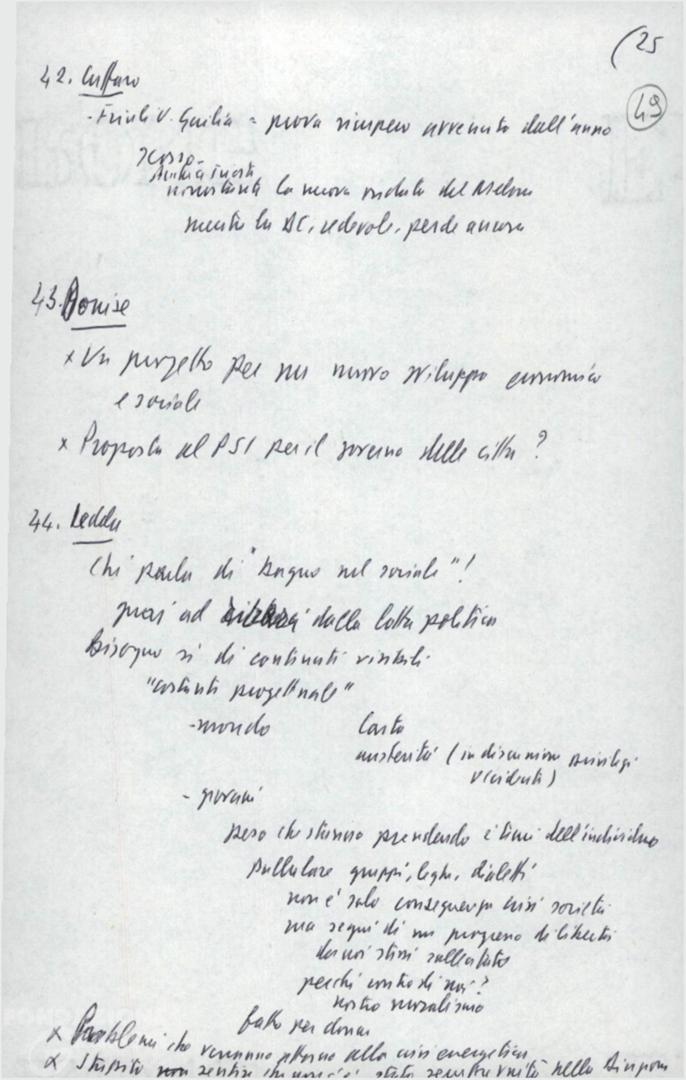 (25
49
42. Cuffaro
- Friuli V. Giulia = prova ripresa avvenuta dall'anno
scorso -
nonostante la nuova ondata del Melone
mentre la DC, cedevole, perde ancora
43. Donise
x Un progetto per un nuovo sviluppo economico
e sociale
x Proposta al PSI per il governo delle città?
44. Ledda
Chi parla di "bagno nel sociale"!
quasi ad dalla lotta politica
Bisogno sì di contenuti visibili
"costanti progettuale"
- mondo Carta
austerità (in discussione privilegi
occidenti)
- giovani
peso che stanno prendendo i temi dell'individuo
Pullulare gruppi, leghe, dialetti
non è solo conseguenza crisi società
ma segni di un progresso di libertà
da noi stessi sollecitato
perché contro di noi?
nostro moralismo
x Problemi che verranno attorno alla crisi energetica
x Stupito non sentire che non c'è stata nella